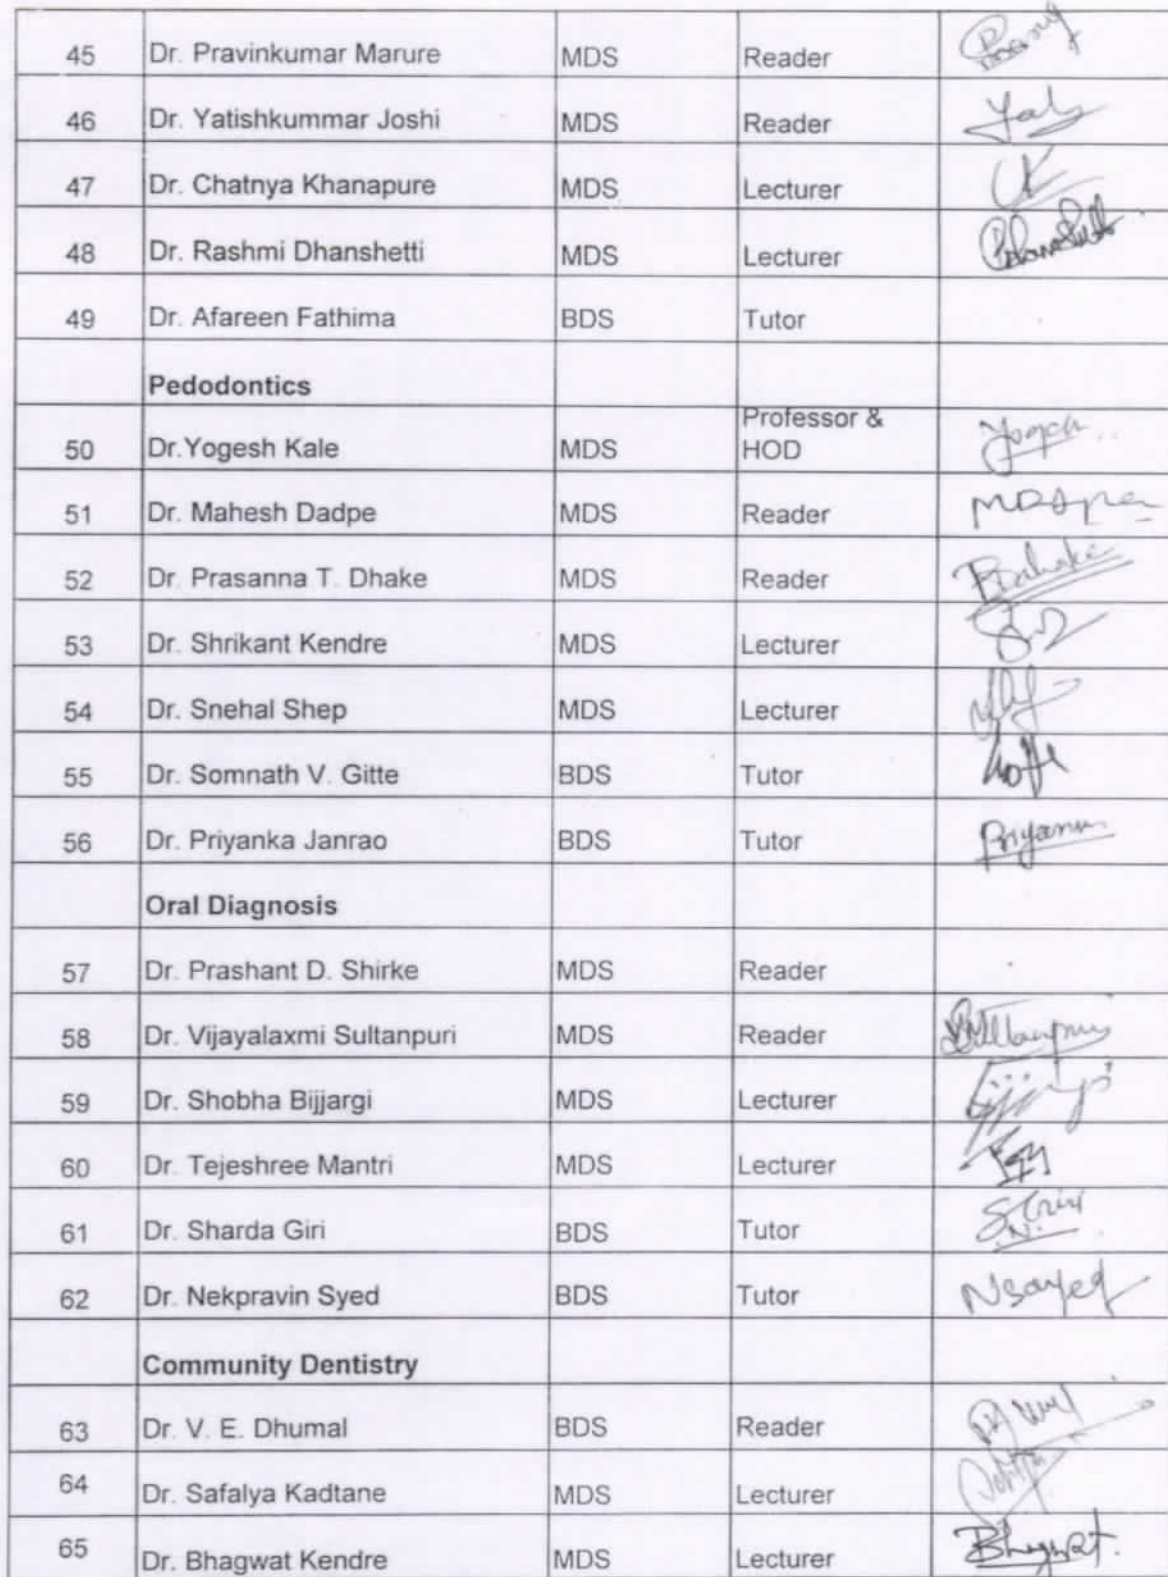 45 Dr. Pravinkumar Marure MDS Reader
46 Dr. Yatishkummar Joshi MDS Reader
47 Dr. Chatnya Khanapure MDS Lecturer CK
48 Dr. Rashmi Dhanshetti MDS Lecturer
49 Dr. Afareen Fathima BDS Tutor
Pedodontics
50 Dr.Yogesh Kale MDS Professor &
HOD Yogesh
51 Dr. Mahesh Dadpe MDS Reader
52 Dr. Prasanna T. Dhake MDS Reader
53 Dr. Shrikant Kendre MDS Lecturer
54 Dr. Snehal Shep MDS Lecturer
55 Dr. Somnath V. Gitte BDS Tutor
56 Dr. Priyanka Janrao BDS Tutor
Oral Diagnosis
57 Dr. Prashant D. Shirke MDS Reader
58 Dr. Vijayalaxmi Sultanpuri MDS Reader
59 Dr. Shobha Bijjargi MDS Lecturer
60 Dr. Tejeshree Mantri MDS Lecturer
61 Dr. Sharda Giri BDS Tutor
62 Dr. Nekpravin Syed BDS Tutor Nsayed
Community Dentistry
63 Dr. V. E. Dhumal BDS Reader
64 Dr. Safalya Kadtane MDS Lecturer
65 Dr. Bhagwat Kendre MDS Lecturer Bhagwat.